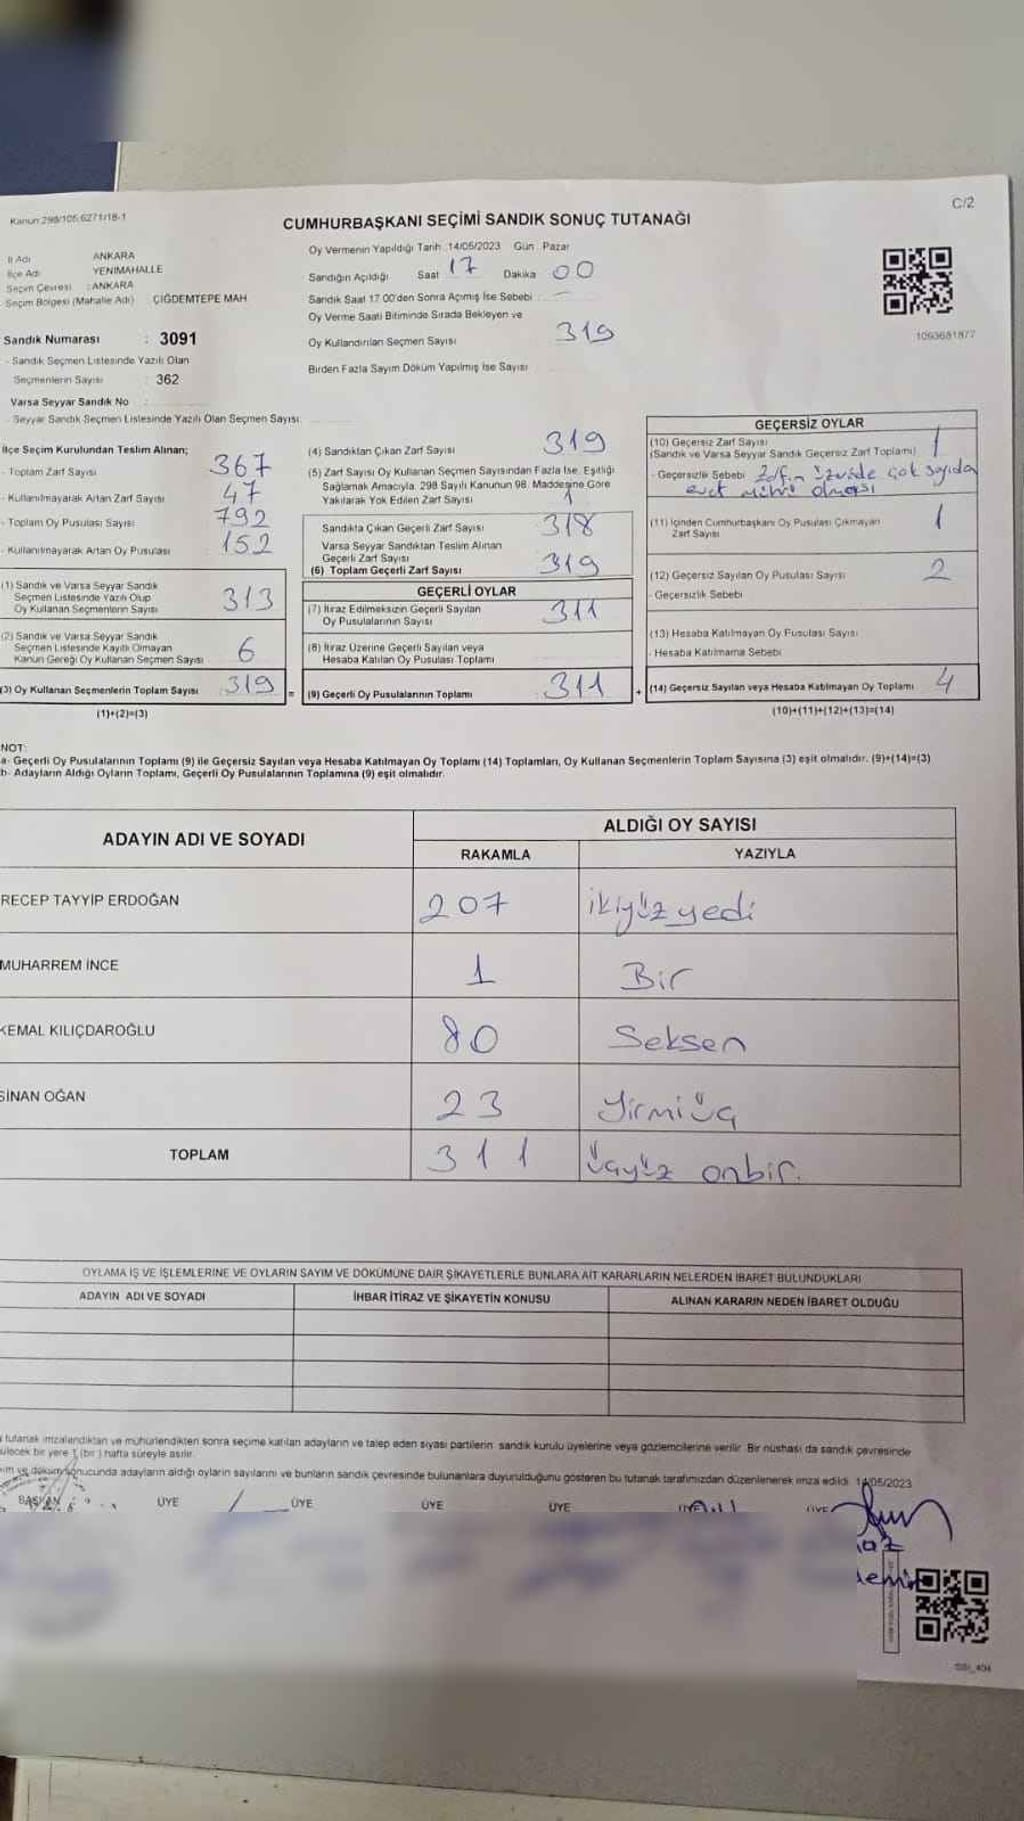 Kanun:298/105,6271/18-1
C/2
CUMHURBAŞKANI SEÇİMİ SANDIK SONUÇ TUTANAĞI
İl Adı ANKARA
İlçe Adı YENİMAHALLE
Seçim Çevresi : ANKARA
Seçim Bölgesi (Mahalle Adı) ÇİĞDEMTEPE MAH
Sandık Numarası : 3091
- Sandık Seçmen Listesinde Yazılı Olan
Seçmenlerin Sayısı : 362
Varsa Seyyar Sandık No
- Seyyar Sandık Seçmen Listesinde Yazılı Olan Seçmen Sayısı:
Oy Vermenin Yapıldığı Tarih :14/05/2023 Gün : Pazar
Sandığın Açıldığı Saat 17 Dakika 00
Sandık Saat 17 00'den Sonra Açımış İse Sebebi : —
Oy Verme Saati Bitiminde Sırada Bekleyen ve
Oy Kullandırılan Seçmen Sayısı 319
Birden Fazla Sayım Döküm Yapılmış İse Sayısı
1093681877
İlçe Seçim Kurulundan Teslim Alınan;
- Toplam Zarf Sayısı 367
- Kullanılmayarak Artan Zarf Sayısı 47
- Toplam Oy Pusulası Sayısı 792
- Kullanılmayarak Artan Oy Pusulası 152
(1) Sandık ve Varsa Seyyar Sandık
Seçmen Listesinde Yazılı Olup
Oy Kullanan Seçmenlerin Sayısı 313
(2) Sandık ve Varsa Seyyar Sandık
Seçmen Listesinde Kayıtlı Olmayan
Kanun Gereği Oy Kullanan Seçmen Sayısı 6
(3) Oy Kullanan Seçmenlerin Toplam Sayısı 319 =
(1)+(2)=(3)
(4) Sandıktan Çıkan Zarf Sayısı 319
(5) Zarf Sayısı Oy Kullanan Seçmen Sayısından Fazla İse, Eşitliği
Sağlamak Amacıyla, 298 Sayılı Kanunun 98. Maddesine Göre
Yakılarak Yok Edilen Zarf Sayısı 1
Sandıkta Çıkan Geçerli Zarf Sayısı 318
Varsa Seyyar Sandıktan Teslim Alınan
Geçerli Zarf Sayısı
(6) Toplam Geçerli Zarf Sayısı 319
GEÇERLİ OYLAR
(7) İtiraz Edilmeksizin Geçerli Sayılan
Oy Pusulalarının Sayısı 311
(8) İtiraz Üzerine Geçerli Sayılan veya
Hesaba Katılan Oy Pusulası Toplamı
(9) Geçerli Oy Pusulalarının Toplamı 311 +
GEÇERSİZ OYLAR
(10) Geçersiz Zarf Sayısı
(Sandık ve Varsa Seyyar Sandık Geçersiz Zarf Toplamı) 1
- Geçersizlik Sebebi Zarfın üzerinde çok sayıda
evet mührü olması
(11) İçinden Cumhurbaşkanı Oy Pusulası Çıkmayan
Zarf Sayısı 1
(12) Geçersiz Sayılan Oy Pusulası Sayısı 2
- Geçersizlik Sebebi
(13) Hesaba Katılmayan Oy Pusulası Sayısı
- Hesaba Katılmama Sebebi
(14) Geçersiz Sayılan veya Hesaba Katılmayan Oy Toplamı 4
(10)+(11)+(12)+(13)=(14)
NOT:
a- Geçerli Oy Pusulalarının Toplamı (9) ile Geçersiz Sayılan veya Hesaba Katılmayan Oy Toplamı (14) Toplamları, Oy Kullanan Seçmenlerin Toplam Sayısına (3) eşit olmalıdır. (9)+(14)=(3)
b- Adayların Aldığı Oyların Toplamı, Geçerli Oy Pusulalarının Toplamına (9) eşit olmalıdır.
ADAYIN ADI VE SOYADI
ALDIĞI OY SAYISI
RAKAMLA YAZIYLA
RECEP TAYYİP ERDOĞAN 207 ikiyüz yedi
MUHARREM İNCE 1 Bir
KEMAL KILIÇDAROĞLU 80 Seksen
SİNAN OĞAN 23 Yirmiüç
TOPLAM 311 üçyüz onbir.
OYLAMA İŞ VE İŞLEMLERİNE VE OYLARIN SAYIM VE DÖKÜMÜNE DAİR ŞİKAYETLERLE BUNLARA AİT KARARLARIN NELERDEN İBARET BULUNDUKLARI
ADAYIN ADI VE SOYADI İHBAR İTİRAZ VE ŞİKAYETİN KONUSU ALINAN KARARIN NEDEN İBARET OLDUĞU
tutanak imzalandıktan ve mühürlendikten sonra seçime katılan adayların ve talep eden siyasi partilerin sandık kurulu üyelerine veya gözlemcilerine verilir. Bir nüshası da sandık çevresinde
bir yere 1 (bir) hafta süreyle asılır.
ve döküm sonucunda adayların aldığı oyların sayılarını ve bunların sandık çevresinde bulunanlara duyurulduğunu gösteren bu tutanak tarafımızdan düzenlenerek imza edildi. 14/05/2023
BAŞKAN ÜYE ÜYE ÜYE ÜYE ÜYE ÜYE